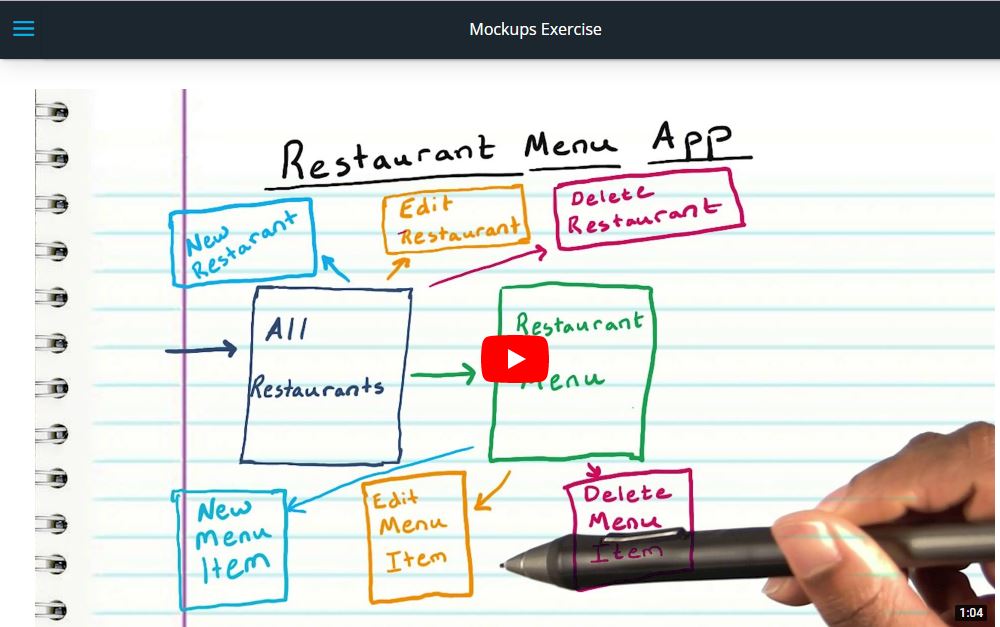 Mockups Exercise
Restaurant Menu App
New
Restarant
Edit
Restaurant
Delete
Restaurant
All
Restaurants
Restaurant
Menu
New
Menu
Item
Edit
Menu
Item
Delete
Menu
Item
1:04